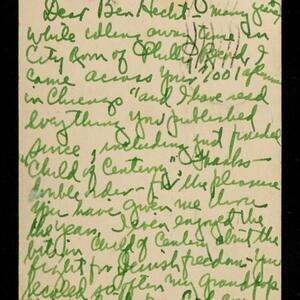 Dear Ben Hecht – many years
while idling away time in
City Room of Phila Record, I
came across your "1001 Afternoons
in Chicago" and I have read
everything you published
since, including just finished
"Child of Century". Thanks –
double rider – for the pleasure
You have given me thru
the years. I even enjoyed the
bits in Child of Century about the
fight for Jewish freedom – you
recalled my Grandpop